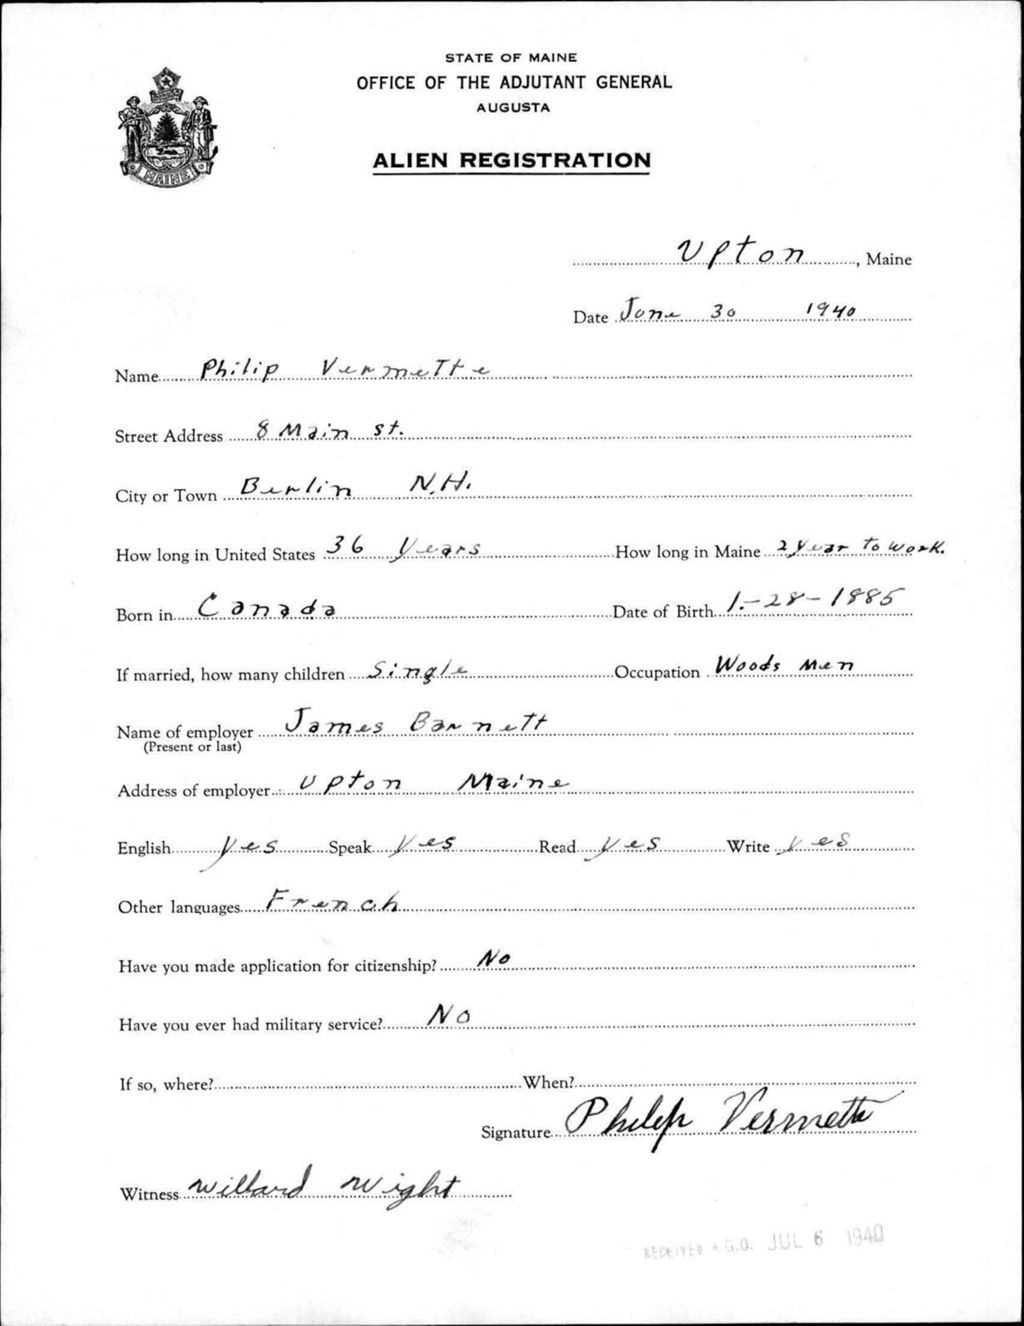 STATE OF MAINE
OFFICE OF THE ADJUTANT GENERAL
AUGUSTA
ALIEN REGISTRATION
MAINE
Upton, Maine
Date June 30 1940
Name Philip Vermette
Street Address 8 Main st.
City or Town Berlin N.H.
How long in United States 36 Years How long in Maine 2 Year to work.
Born in Canada Date of Birth 1.-28-1885
If married, how many children Single Occupation Woods Men
Name of employer James Barnett
(Present or last)
Address of employer Upton Maine
English yes Speak Yes Read Yes Write yes
Other languages French
Have you made application for citizenship? No
Have you ever had military service? No
If so, where? When?
Signature Philip Vermette
Witness Willard Wight
RECEIVED A.G.O. JUL 6 1940